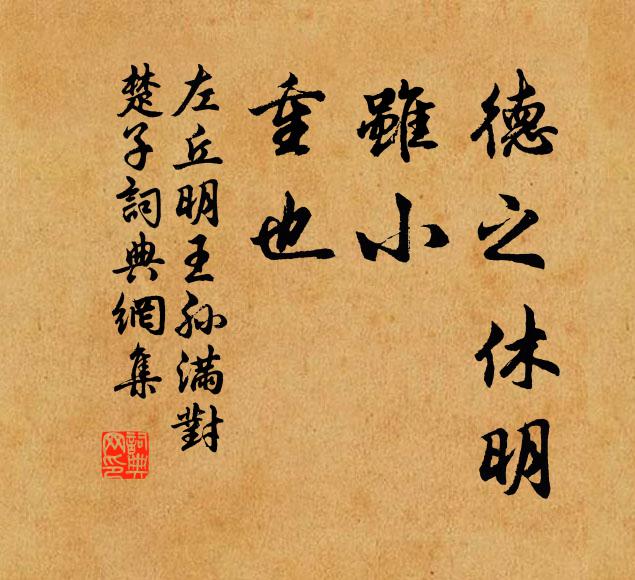 德之休明
雖小
重也
左丘明王孫滿對
楚子詞典網集
詞典
網印